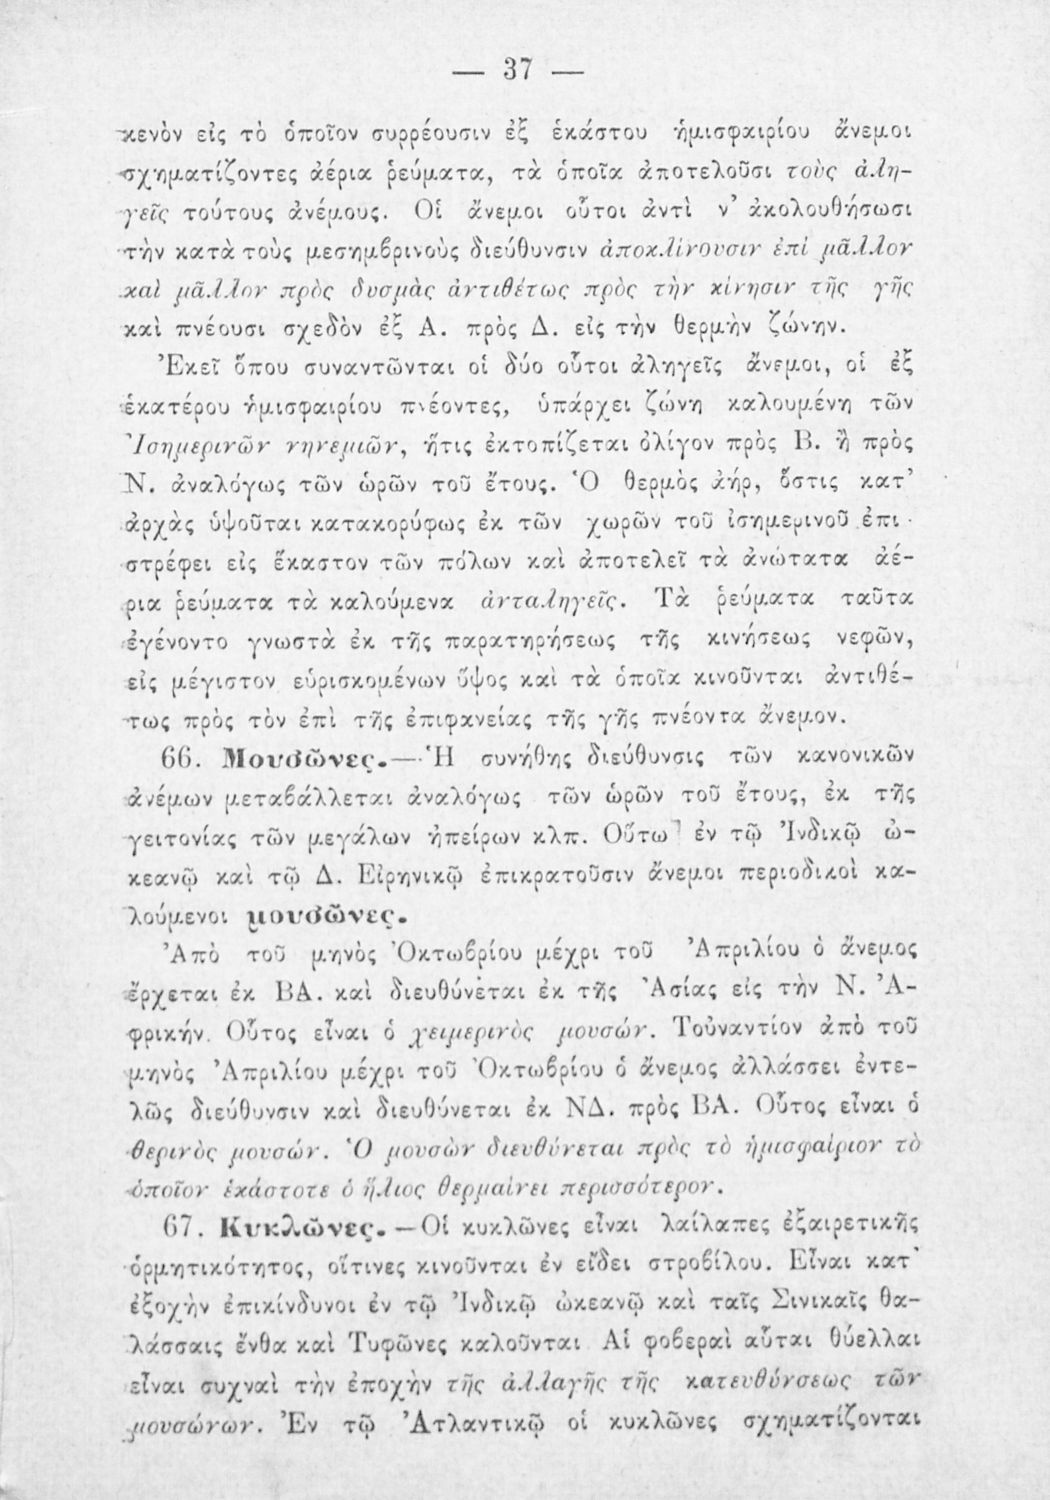 — 37 —
κενὸν εἰς τὸ ὁποῖον συρρέουσιν ἐξ ἑκάστου ἡμισφαιρίου ἄνεμοι
σχηματίζοντες ἀέρια ῥεύματα, τὰ ὁποῖα ἀποτελοῦσι τοὺς ἀλη-
γεῖς τούτους ἀνέμους. Οἱ ἄνεμοι οὗτοι ἀντὶ ν’ ἀκολουθήσωσι
τὴν κατὰ τοὺς μεσημβρινοὺς διεύθυνσιν ἀποκλίνουσιν ἐπὶ μᾶλλον
καὶ μᾶλλον πρὸς δυσμὰς ἀντιθέτως πρὸς τὴν κίνησιν τῆς γῆς
καὶ πνέουσι σχεδὸν ἐξ Α. πρὸς Δ. εἰς τὴν θερμὴν ζώνην.
Ἐκεῖ ὅπου συναντῶνται οἱ δύο οὗτοι ἀληγεῖς ἄνεμοι, οἱ ἐξ
ἑκατέρου ἡμισφαιρίου πνέοντες, ὑπάρχει ζώνη καλουμένη τῶν
Ἰσημερινῶν νηνεμιῶν, ἥτις ἐκτοπίζεται ὀλίγον πρὸς Β. ἢ πρὸς
Ν. ἀναλόγως τῶν ὡρῶν τοῦ ἔτους. Ὁ θερμὸς ἀήρ, ὅστις κατ’
ἀρχὰς ὑψοῦται κατακορύφως ἐκ τῶν χωρῶν τοῦ ἰσημερινοῦ ἐπι-
στρέφει εἰς ἕκαστον τῶν πόλων καὶ ἀποτελεῖ τὰ ἀνώτατα ἀέ-
ρια ῥεύματα τὰ καλούμενα ἀνταληγεῖς. Τὰ ῥεύματα ταῦτα
ἐγένοντο γνωστὰ ἐκ τῆς παρατηρήσεως τῆς κινήσεως νεφῶν,
εἰς μέγιστον εὑρισκομένων ὕψος καὶ τὰ ὁποῖα κινοῦνται ἀντιθέ-
τως πρὸς τὸν ἐπὶ τῆς ἐπιφανείας τῆς γῆς πνέοντα ἄνεμον.
66. Μουσῶνες.— Ἡ συνήθης διεύθυνσις τῶν κανονικῶν
ἀνέμων μεταβάλλεται ἀναλόγως τῶν ὡρῶν τοῦ ἔτους, ἐκ τῆς
γειτονίας τῶν μεγάλων ἠπείρων κλπ. Οὕτω ἐν τῷ Ἰνδικῷ ὠ-
κεανῷ καὶ τῷ Δ. Εἰρηνικῷ ἐπικρατοῦσιν ἄνεμοι περιοδικοὶ κα-
λούμενοι μουσῶνες.
Ἀπὸ τοῦ μηνὸς Ὀκτωβρίου μέχρι τοῦ Ἀπριλίου ὁ ἄνεμος
ἔρχεται ἐκ ΒΑ. καὶ διευθύνεται ἐκ τῆς Ἀσίας εἰς τὴν Ν. Ἀ-
φρικήν. Οὗτος εἶναι ὁ χειμερινὸς μουσών. Τοὐναντίον ἀπὸ τοῦ
μηνὸς Ἀπριλίου μέχρι τοῦ Ὀκτωβρίου ὁ ἄνεμος ἀλλάσσει ἐντε-
λῶς διεύθυνσιν καὶ διευθύνεται ἐκ ΝΔ. πρὸς ΒΑ. Οὗτος εἶναι ὁ
θερινὸς μουσών. Ὁ μουσὼν διευθύνεται πρὸς τὸ ἡμισφαίριον τὸ
ὁποῖον ἑκάστοτε ὁ ἥλιος θερμαίνει περισσότερον.
67. Κυκλῶνες. — Οἱ κυκλῶνες εἶναι λαίλαπες ἐξαιρετικῆς
ὁρμητικότητος, οἵτινες κινοῦνται ἐν εἴδει στροβίλου. Εἶναι κατ’
ἐξοχὴν ἐπικίνδυνοι ἐν τῷ Ἰνδικῷ ὠκεανῷ καὶ ταῖς Σινικαῖς θα-
λάσσαις ἔνθα καὶ Τυφῶνες καλοῦνται Αἱ φοβεραὶ αὗται θύελλαι
εἶναι συχναὶ τὴν ἐποχὴν τῆς ἀλλαγῆς τῆς κατευθύνσεως τῶν
μουσώνων. Ἐν τῷ Ἀτλαντικῷ οἱ κυκλῶνες σχηματίζονται